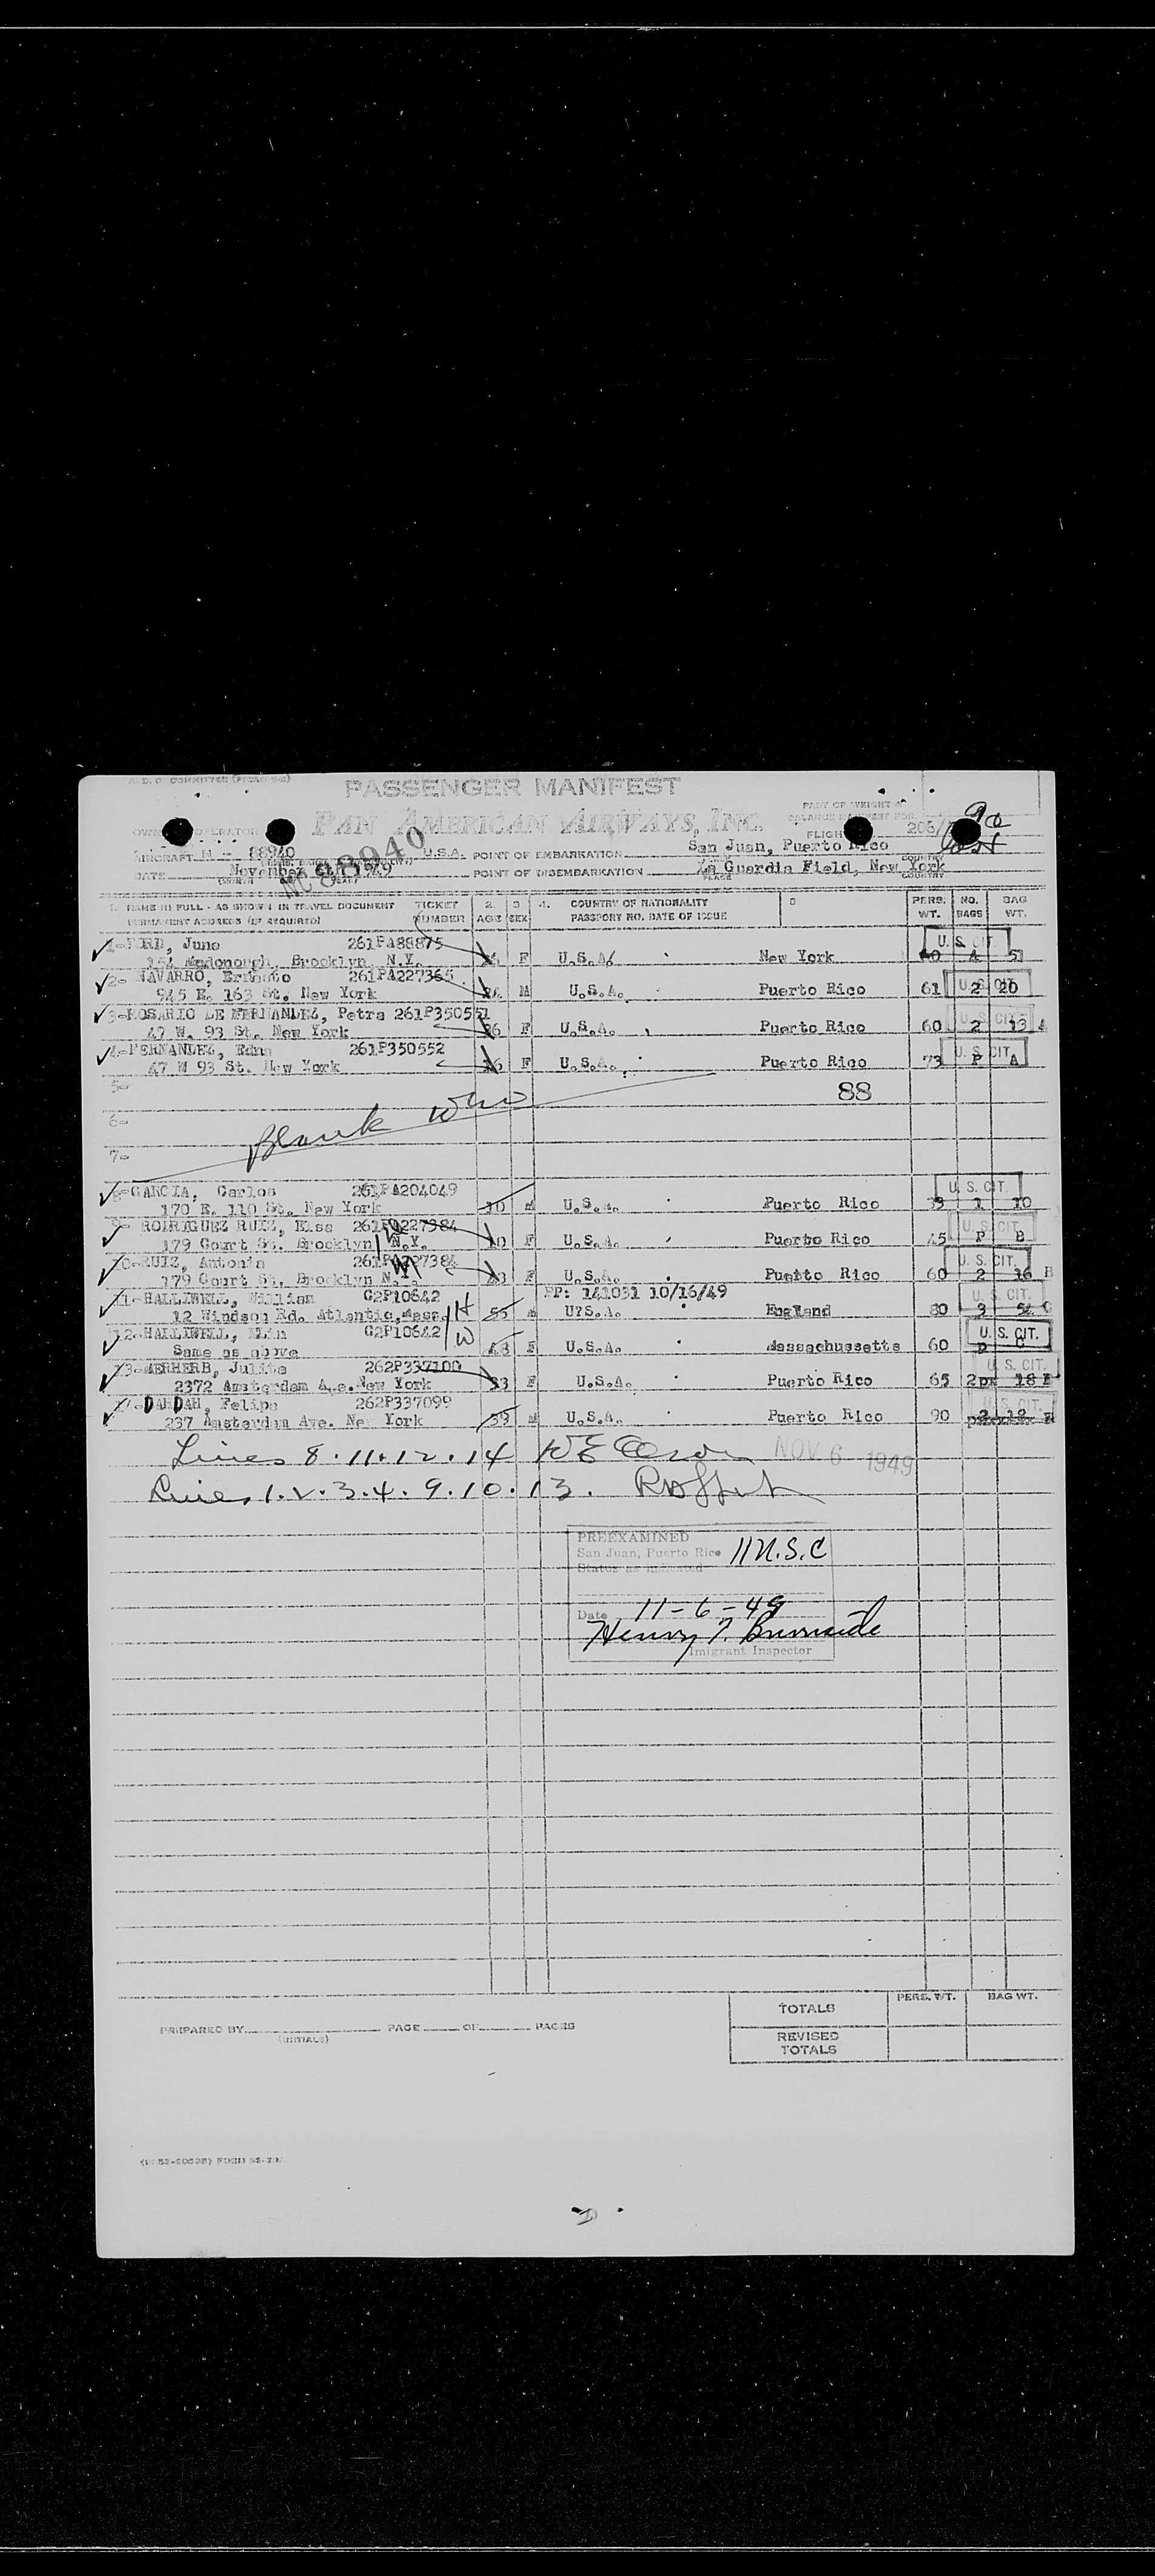 PASSENGER MANIFEST
PAN AMERICAN AIRWAYS, INC.
PART OF WEIGHT &
OPERATOR FLIGHT 206/
AIRCRAFT N - 88940 U.S.A. POINT OF EMBARKATION San Juan, Puerto Rico
NC 88940
DATE November 6th 1949 POINT OF DISEMBARKATION La Guardia Field, New York
1. NAME IN FULL - AS SHOWN IN TRAVEL DOCUMENT TICKET 2. 3 4. COUNTRY OF NATIONALITY 5 PERS. NO. BAG
PERMANENT ADDRESS (IF REQUIRED) NUMBER AGE SEX PASSPORT NO. DATE OF ISSUE WT. BAGS WT.
1-FORD, June 261PA88875 U. S. CIT.
154 Mcdonough, Brooklyn, N.Y. F U.S.A/ New York 4 51
2- NAVARRO, Ernesto 261PA227365 U. S. CIT.
945 E. 163 St. New York M U.S.A. Puerto Rico 61 2 20
3-ROSARIO DE FERNANDEZ, Petra 261P350551 U. S. CIT.
47 W. 93 St. New York 36 F U.S.A. Puerto Rico 60 2 13 A
4-FERNANDEZ, Edna 261P350552 U. S. CIT.
47 W 93 St. New York F U.S.A. Puerto Rico 73 P A
5- 88
6- Blank
7-
8-GARCIA, Carlos 261PA204049 U. S. CIT.
170 E. 110 St. New York M U.S.A. Puerto Rico 1 10
9- RODRIGUEZ RUIZ, Elsa 261PA227384 U. S. CIT.
179 Court St. Brooklyn N.Y. 10 F U.S.A. Puerto Rico 45 P B
10-RUIZ, Antonia 261PA227384 U. S. CIT.
179 Court St. Brooklyn N.Y. F U.S.A. Puerto Rico 60 2 16 B
11-HALLIWELL, William G2P10642 PP: 141031 10/16/49 U. S. CIT.
12 Windson Rd. Atlantic, Mass. H 55 M U?S.A. England 80 3 54 C
12-HALLIWELL, G2P10642 W U. S. CIT.
Same as above 48 F U.S.A. Massachussetts 60 P C
13- Julita 262P337100 U. S. CIT.
2372 Amsterdam Ave. New York 33 F U.S.A. Puerto Rico 65 2px 18 E
14-DAHDAH, Felipe 262P337099 U. S. CIT.
237 Amsterdam Ave. New York 59 M U.S.A. Puerto Rico 90
Lines 8.11.12.14 NOV 6 1949
Lines 1.2.3.4.9.10.13.
PREEXAMINED
San Juan, Puerto Rico 11 U.S.C
Status as indicated
Date 11-6-49
Henry T. Burnside
Imigrant Inspector
PERS. WT. BAG WT.
TOTALS
PREPARED BY PAGE OF PAGES
(INITIALS)
REVISED
TOTALS